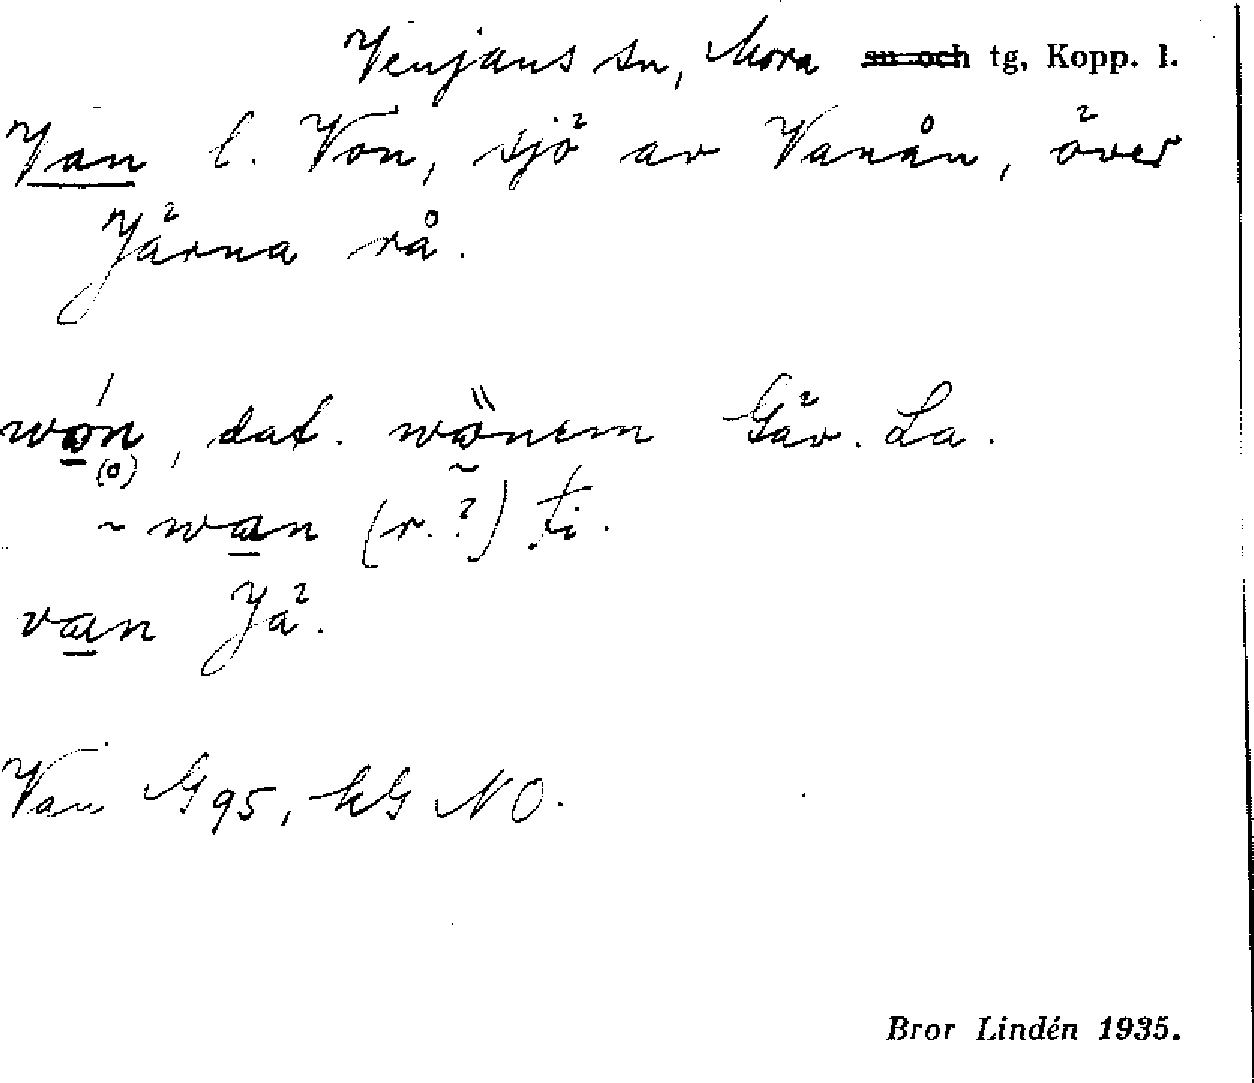 Venjans sn, Mora sn och tg, Kopp. l.
Van l. Von, sjö av Vanån, över
Järna rå.
wo̱n, dat. wönem Gäv. La.
(o)
~ wa̱n (r.?) ti.
va̱n Jä.
Van G 95, hG NO.
Bror Lindén 1935.